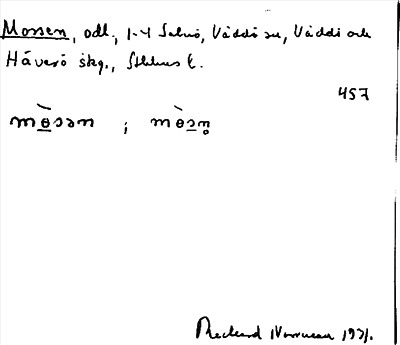 Mossen, odl., 1-4 Salnö, Väddö sn, Väddö och
Häverö skg., Sthlms l.
457
mòsən ; mòsn̥
Rickard Norrman 1931.